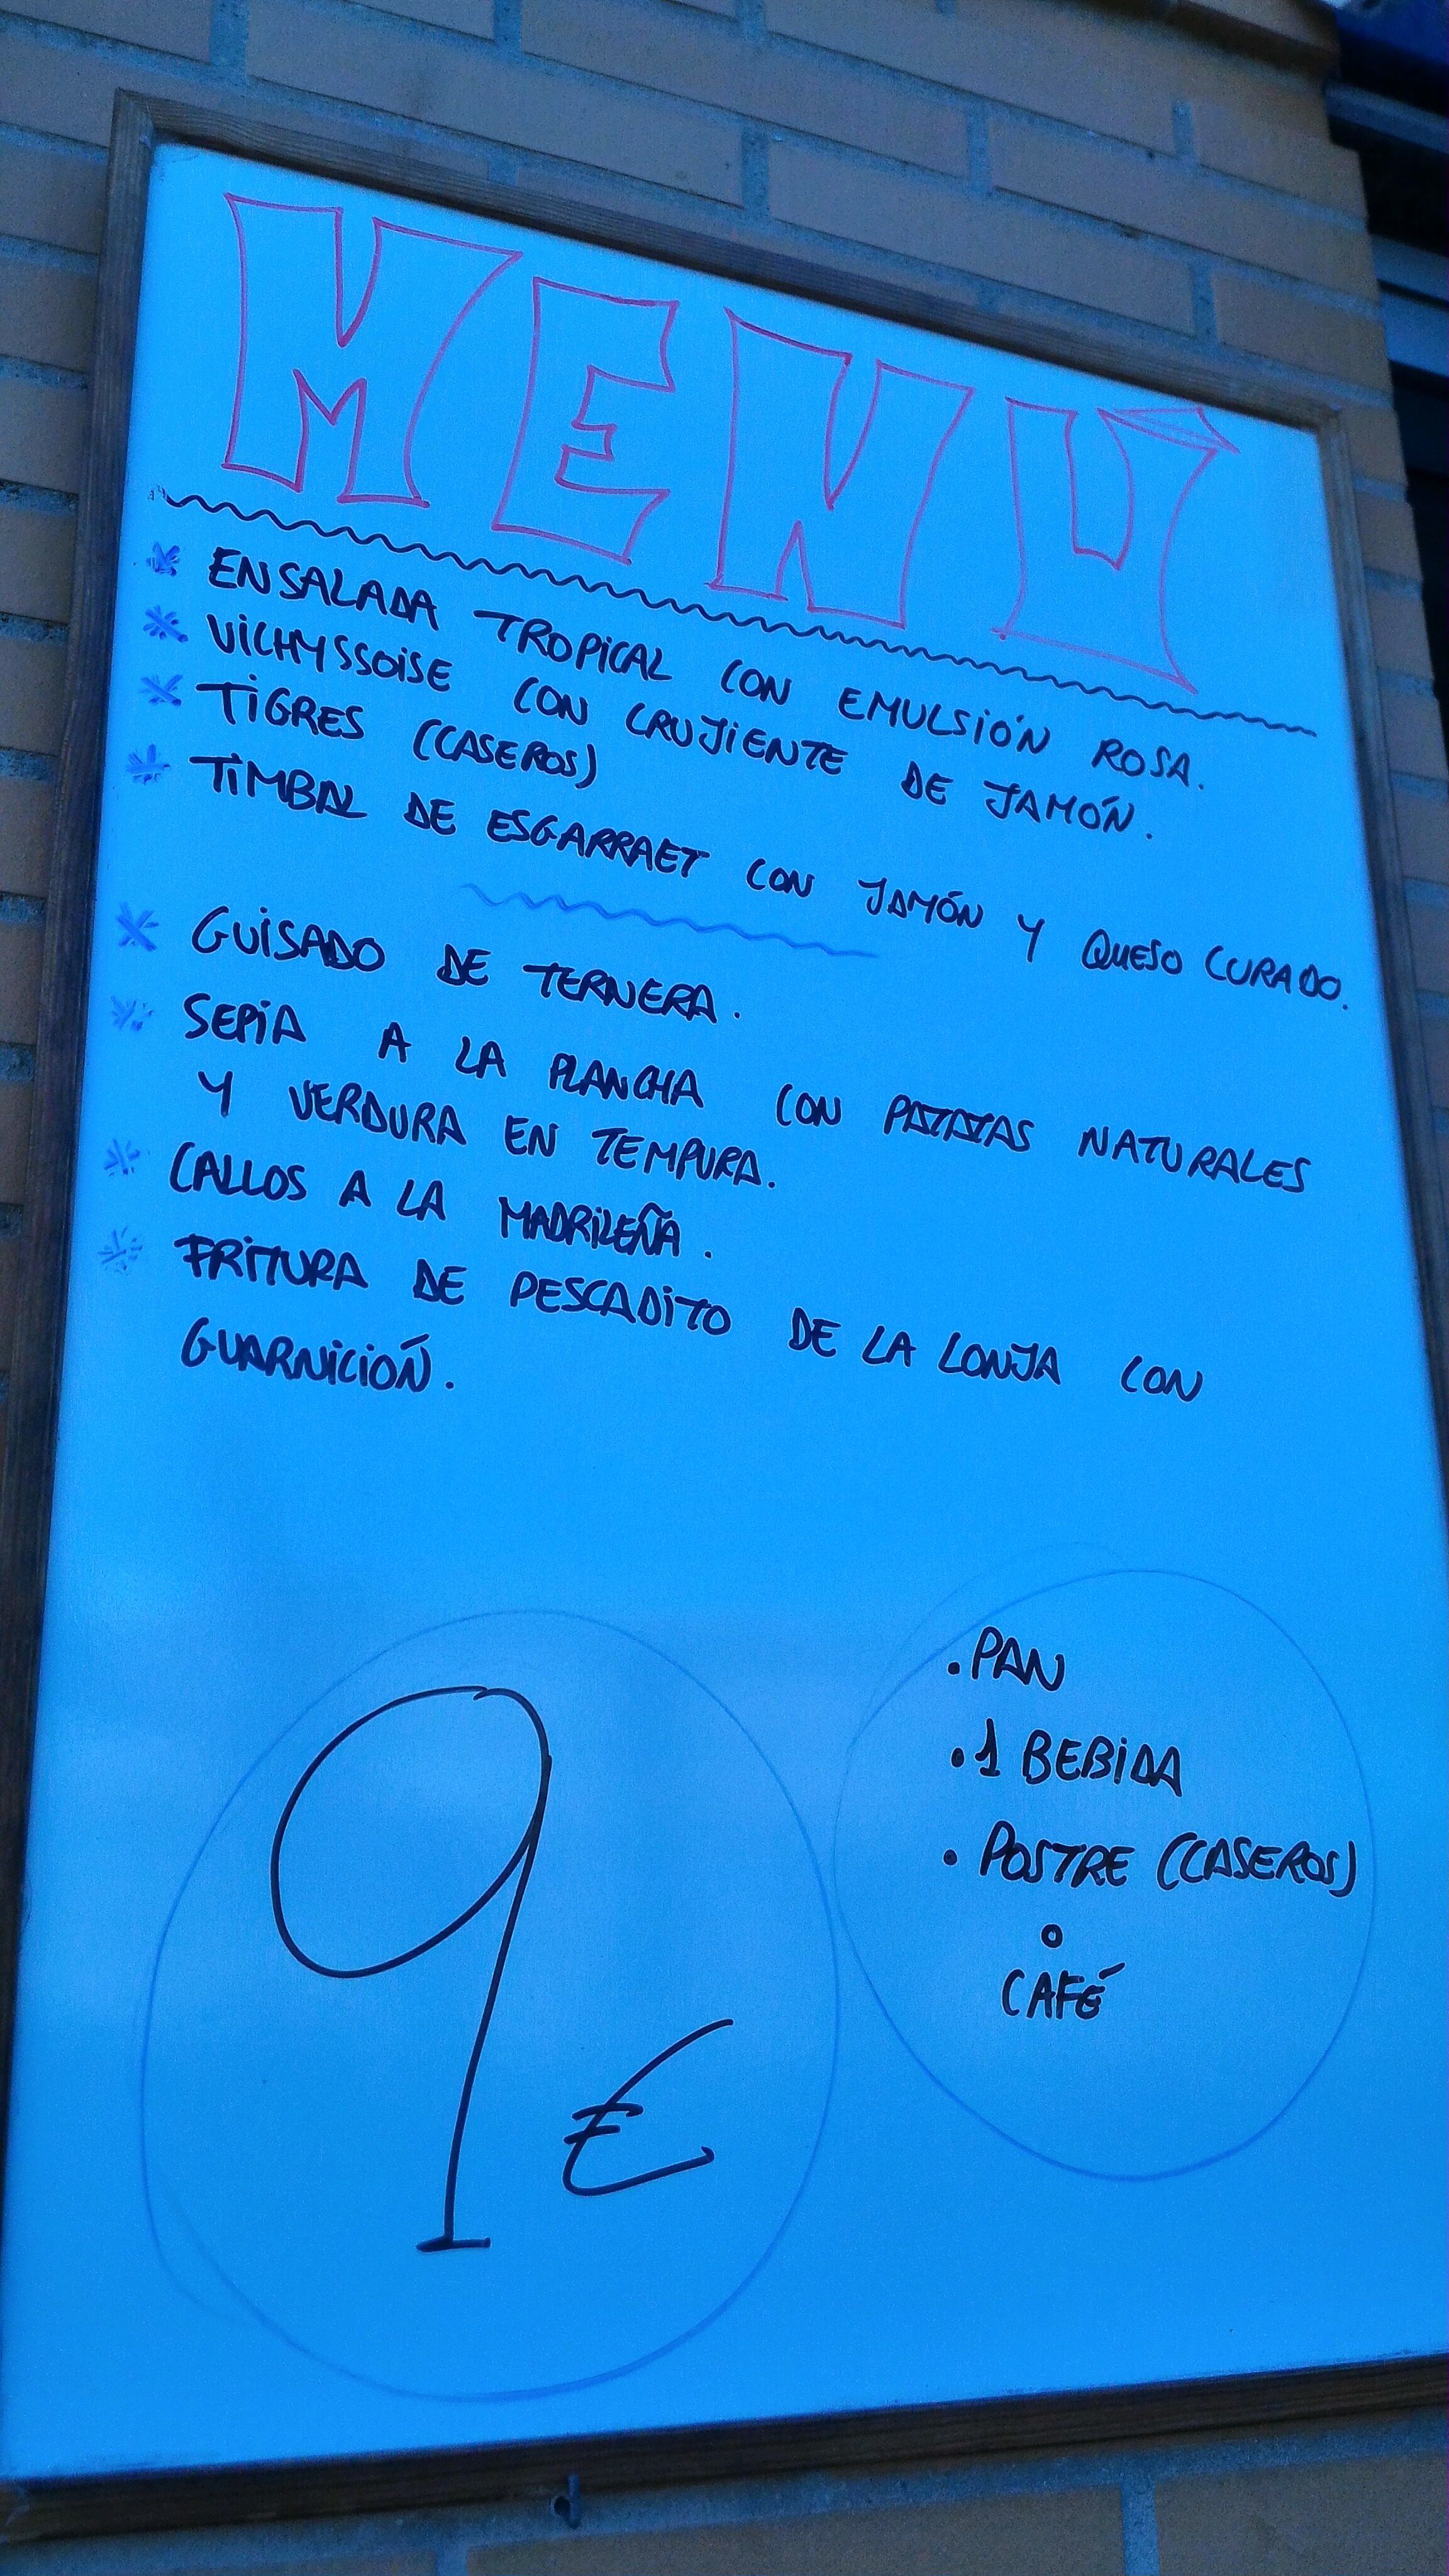 MENÚ
* ENSALADA TROPICAL CON EMULSIÓN ROSA.
* VICHYSSOISE CON CRUJIENTE DE JAMÓN.
* TIGRES (CASEROS)
* TIMBAL DE ESGARRAET CON JAMÓN Y QUESO CURADO.
* GUISADO DE TERNERA.
* SEPIA A LA PLANCHA CON PATATAS NATURALES
Y VERDURA EN TEMPURA.
* CALLOS A LA MADRILEÑA.
* FRITURA DE PESCADITO DE LA LONJA CON
GUARNICIÓN.
9 €
. PAN
. 1 BEBIDA
. POSTRE (CASEROS)
o
CAFÉ